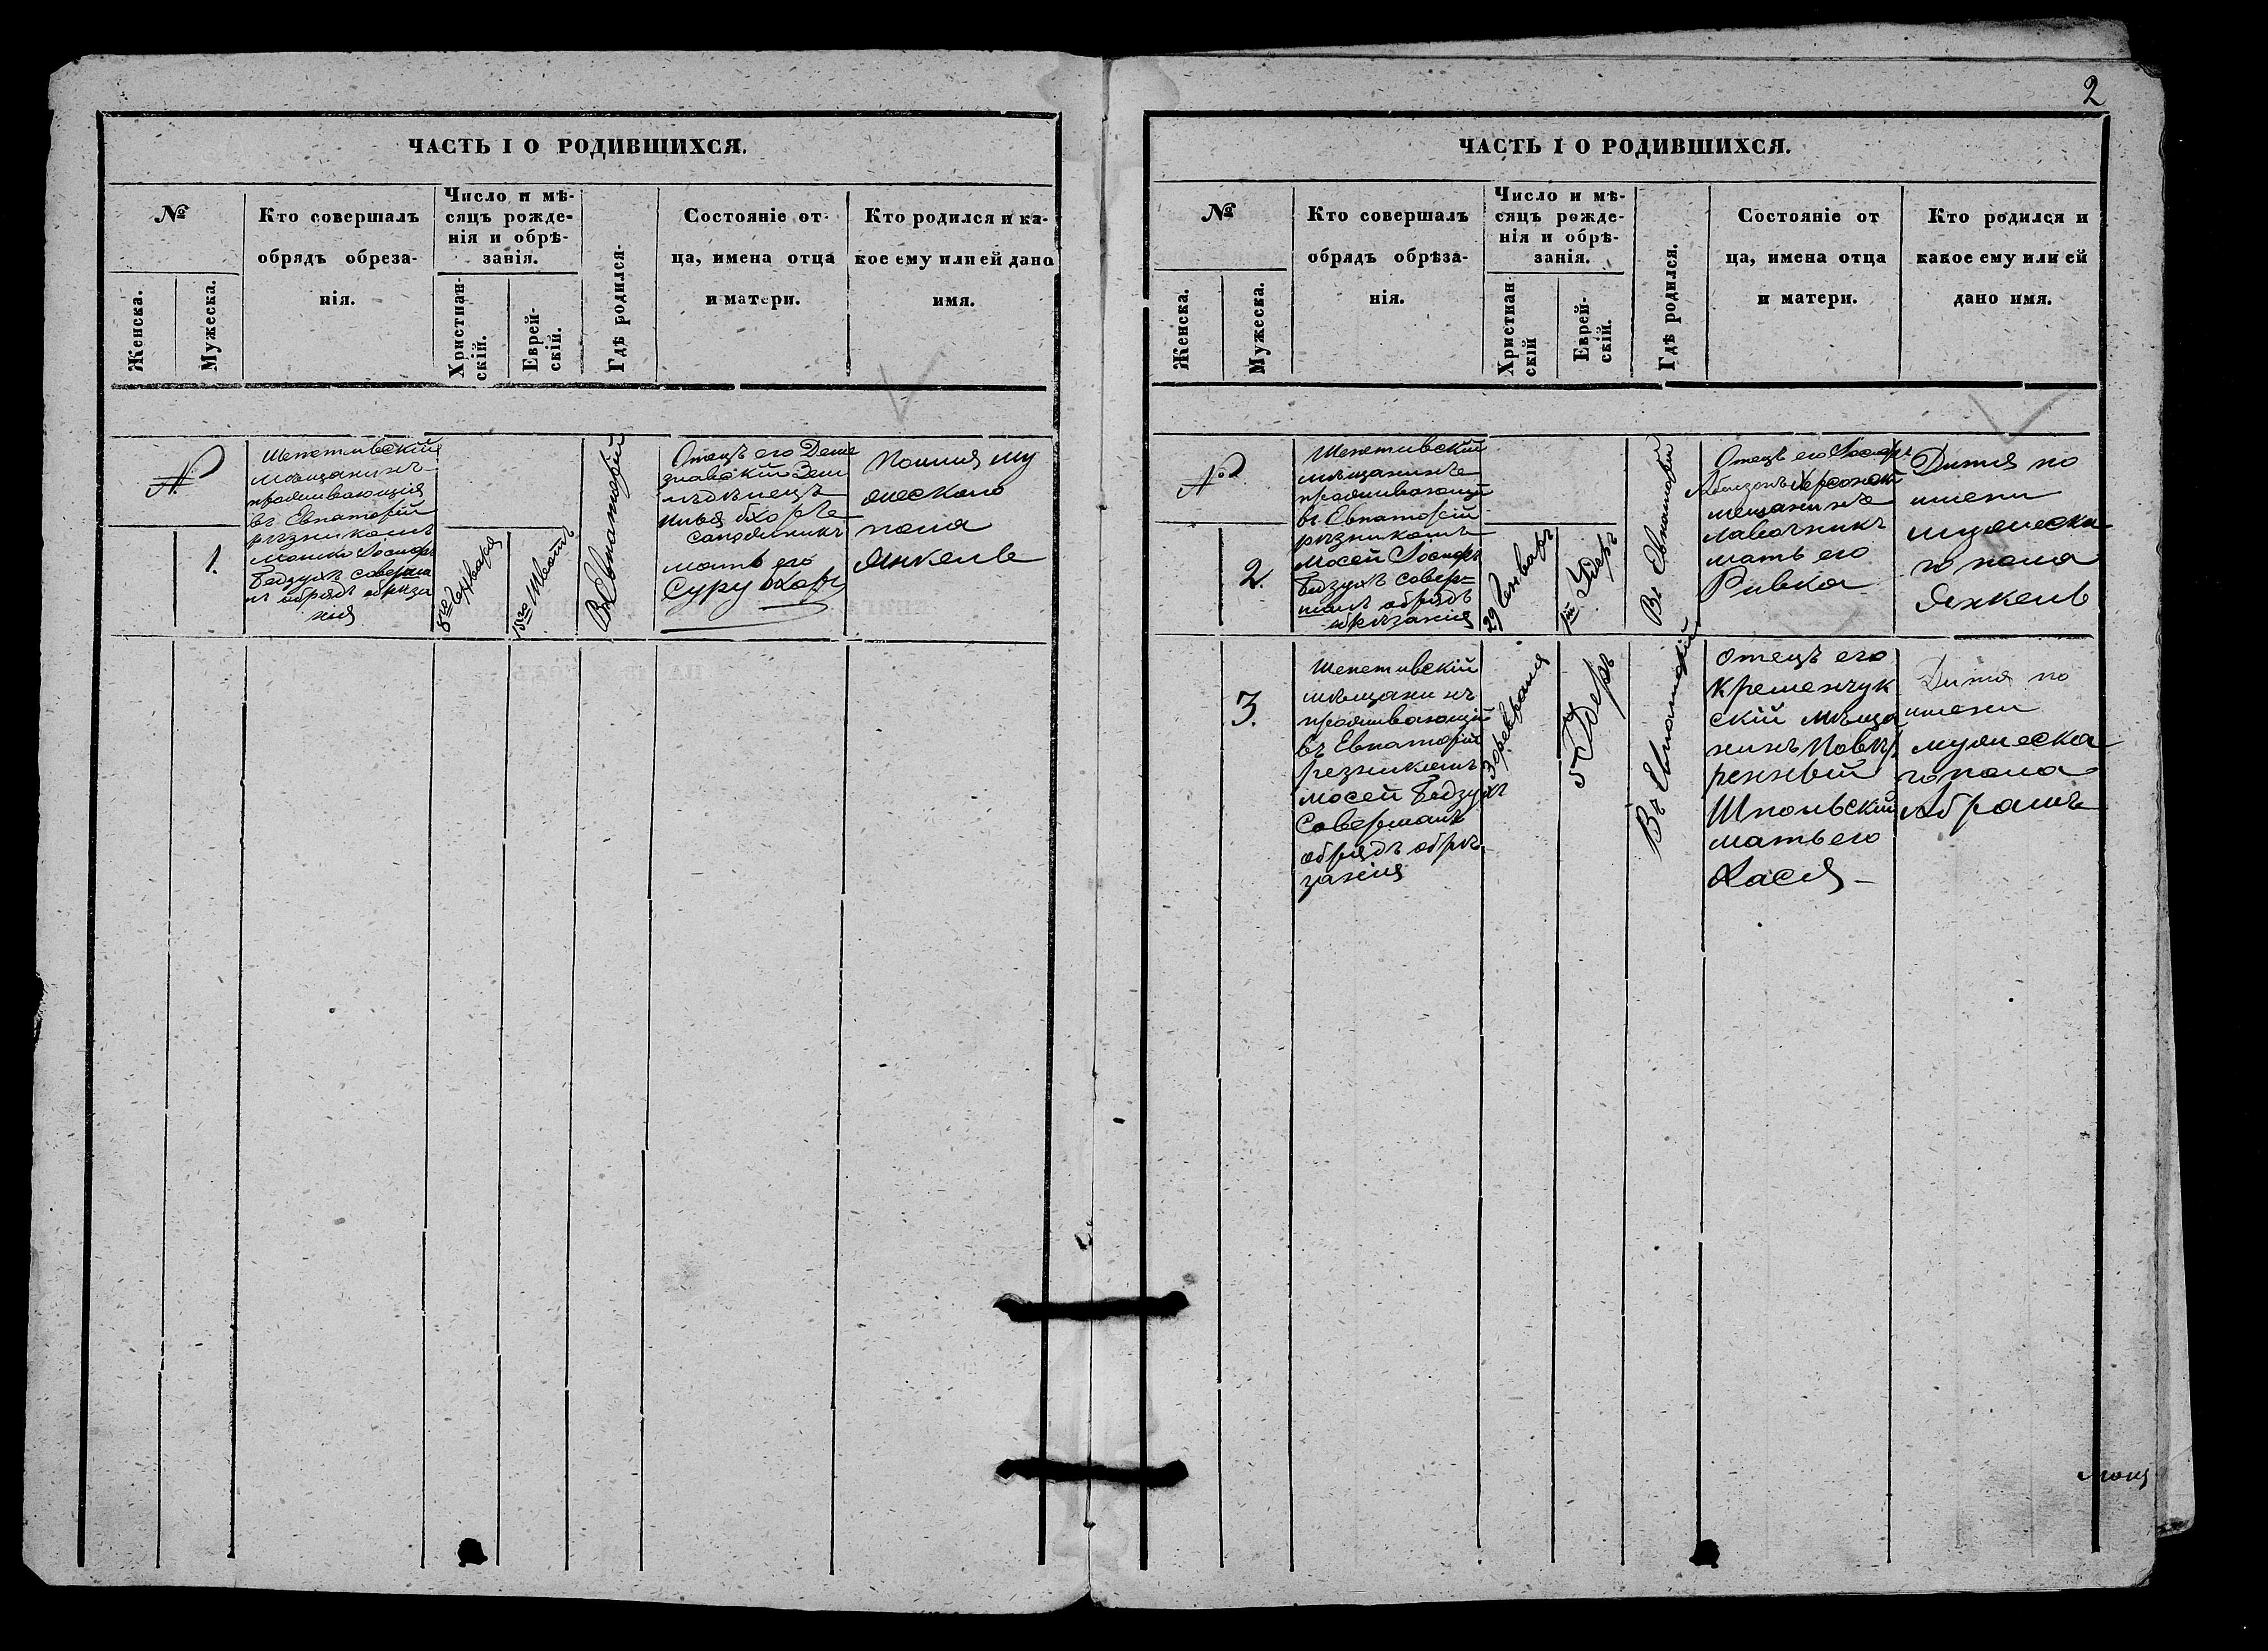 ЧАСТЬ I О РОДИВШИХСЯ.
№
Женска.
Мужеска.
Кто совершалъ
обрядъ обреза-
нія.
Число и мѣ-
сяцъ рожде-
нія и обрѣ-
занія.
Христиан-
скій.
Еврей-
скій.
Гдѣ родился.
Состояніе от-
ца, имена отца
и матери.
Кто родился и ка-
кое ему или ей дано
имя.
№
1.
Шепетивскій
мѣщанинъ
проживающія
въ Евпаторій
рѣзникомъ
Мошко Іосифъ
Бедзухъ соверша
лъ обрядъ обреза
нія
8го Января
15го Шватъ
Въ Евпаторій
Отецъ его
мать его
Суру
Полия му
жескаго
пола
Янкель
2
ЧАСТЬ I О РОДИВШИХСЯ.
№
Женска.
Мужеска.
Кто совершалъ
обрядъ обрѣза-
нія.
Число и мѣ-
сяцъ рожде-
нія и обрѣ-
занія.
Христиан
скій
Еврей-
скій.
Гдѣ родился.
Состояніе от
ца, имена отца
и матери.
Кто родился и
какое ему или ей
дано имя.
№
2.
Шепетивскій
мѣщанинъ
проживающій
въ Евпаторій
рѣзникомъ
Мосей Іосифъ
Бедзухъ совер=
шалъ обрядъ
обрѣзанія
29 Генваръ
Удеръ
Въ Евпаторій
Отецъ его Іосифъ
Херсонскій
мещанинъ
лавочникъ
мать его
Ривка
Дитя по
имени
мужеска
го пола
Янкель
3.
Шепетивскій
мѣщанинъ
проживающій
въ Евпаторіи
резникомъ
Мосей Бедзухъ
Совершалъ
обрядъ обрѣ
занія
3 февраля
5 Удеръ
Въ Евпаторій
Отецъ его
Кременчук
скій мѣща
нинъ Повѣ
ренный
Шпольскій
мать его
Хася
Дитя по
имени
мужеска
го пола
Абрамъ